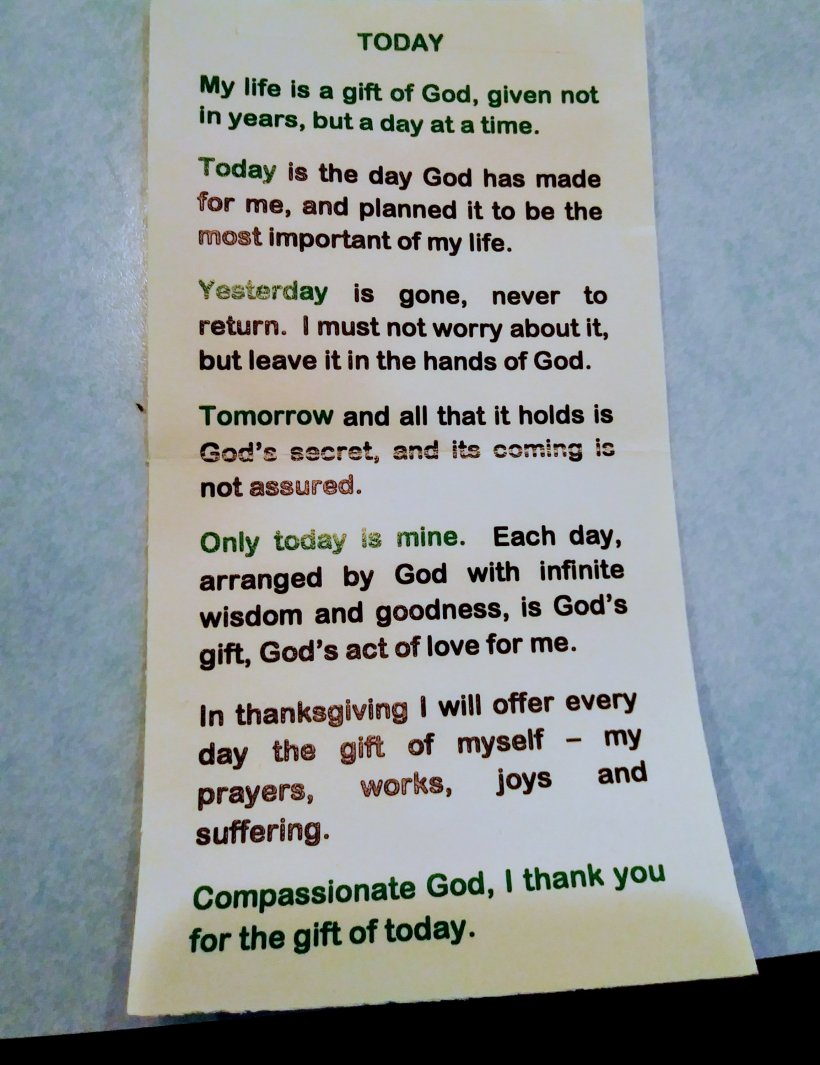 TODAY
My life is a gift of God, given not
in years, but a day at a time.
Today is the day God has made
for me, and planned it to be the
most important of my life.
Yesterday is gone, never to
return. I must not worry about it,
but leave it in the hands of God.
Tomorrow and all that it holds is
God's secret, and its coming is
not assured.
Only today is mine. Each day,
arranged by God with infinite
wisdom and goodness, is God's
gift, God's act of love for me.
In thanksgiving I will offer every
day the gift of myself – my
prayers, works, joys and
suffering.
Compassionate God, I thank you
for the gift of today.